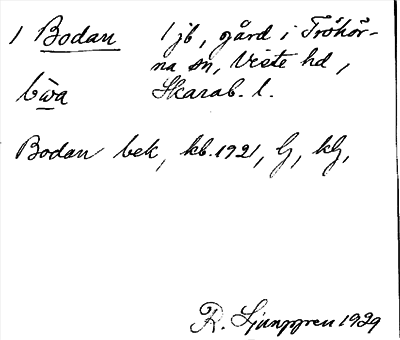 1 Bodan 1 jb, gård i Tråhör-
na sn, Viste hd,
bwa Skarab. l.
Bodan bek, kb. 1921, G, kG,
R. Ljunggren 1929